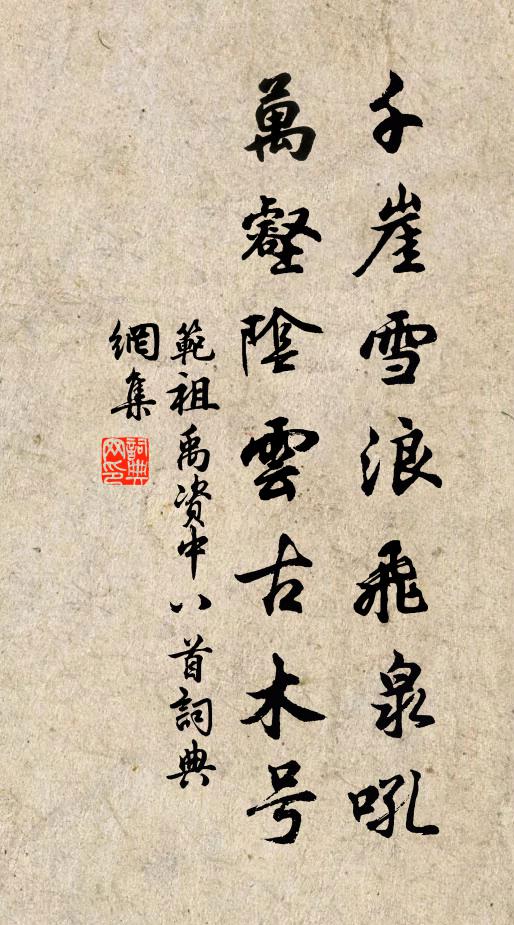 千崖雪浪飛泉吼
萬壑陰雲古木号
範祖禹資中八首詞典
網集
詞典
网印